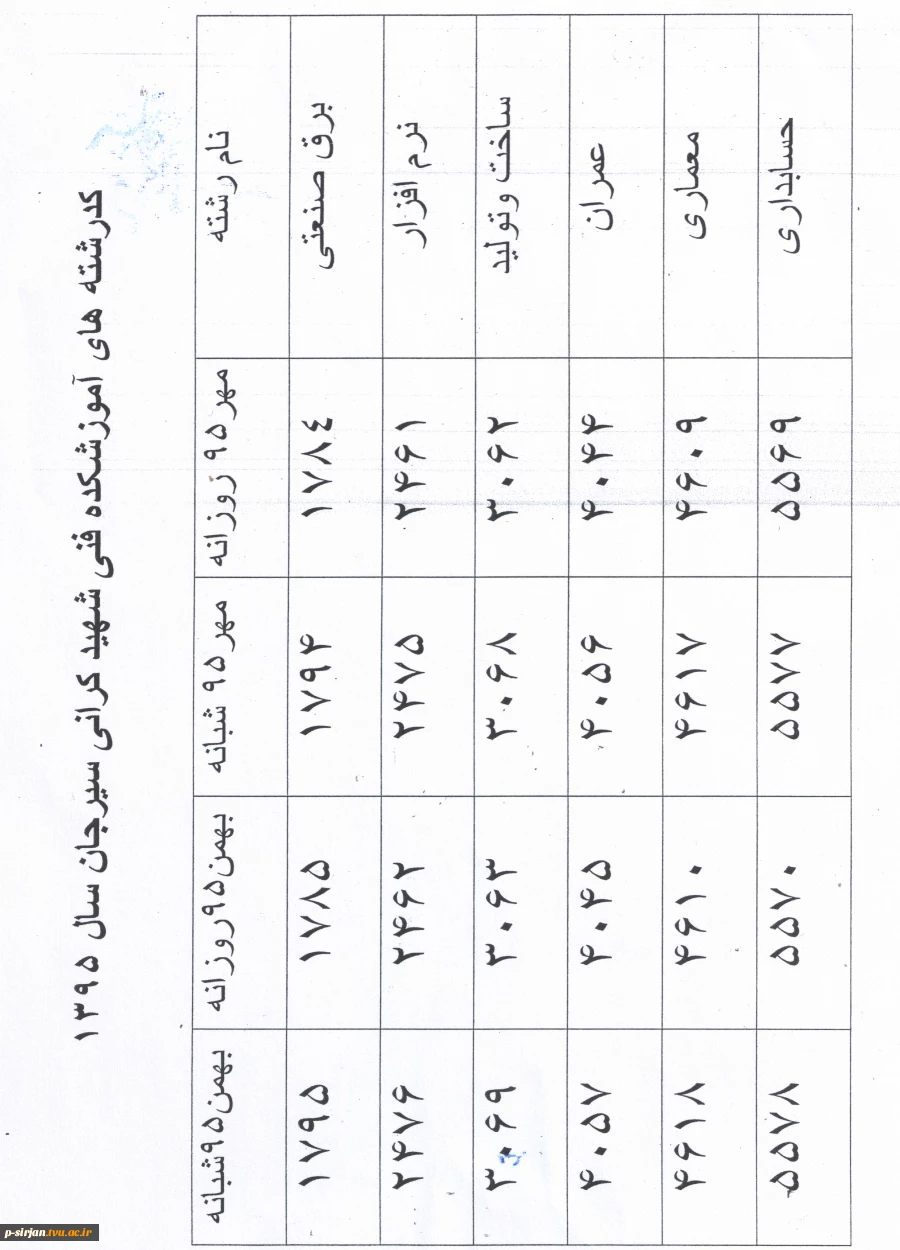 کدرشته های آموزشکده فنی شهید کرانی سیرجان سال ۱۳۹۵
نام رشته مهر ۹۵ روزانه مهر ۹۵ شبانه بهمن۹۵روزانه بهمن۹۵شبانه
برق صنعتی ۱۷۸٤ ۱۷۹۴ ۱۷۸۵ ۱۷۹۵
نرم افزار ۲۴۶۱ ۲۴۷۵ ۲۴۶۲ ۲۴۷۶
ساخت وتولید ۳۰۶۲ ۳۰۶۸ ۳۰۶۳ ۳۰۶۹
عمران ۴۰۴۴ ۴۰۵۶ ۴۰۴۵ ۴۰۵۷
معماری ۴۶۰۹ ۴۶۱۷ ۴۶۱۰ ۴۶۱۸
حسابداری ۵۵۶۹ ۵۵۷۷ ۵۵۷۰ ۵۵۷۸
p-sirjan.tvu.ac.ir